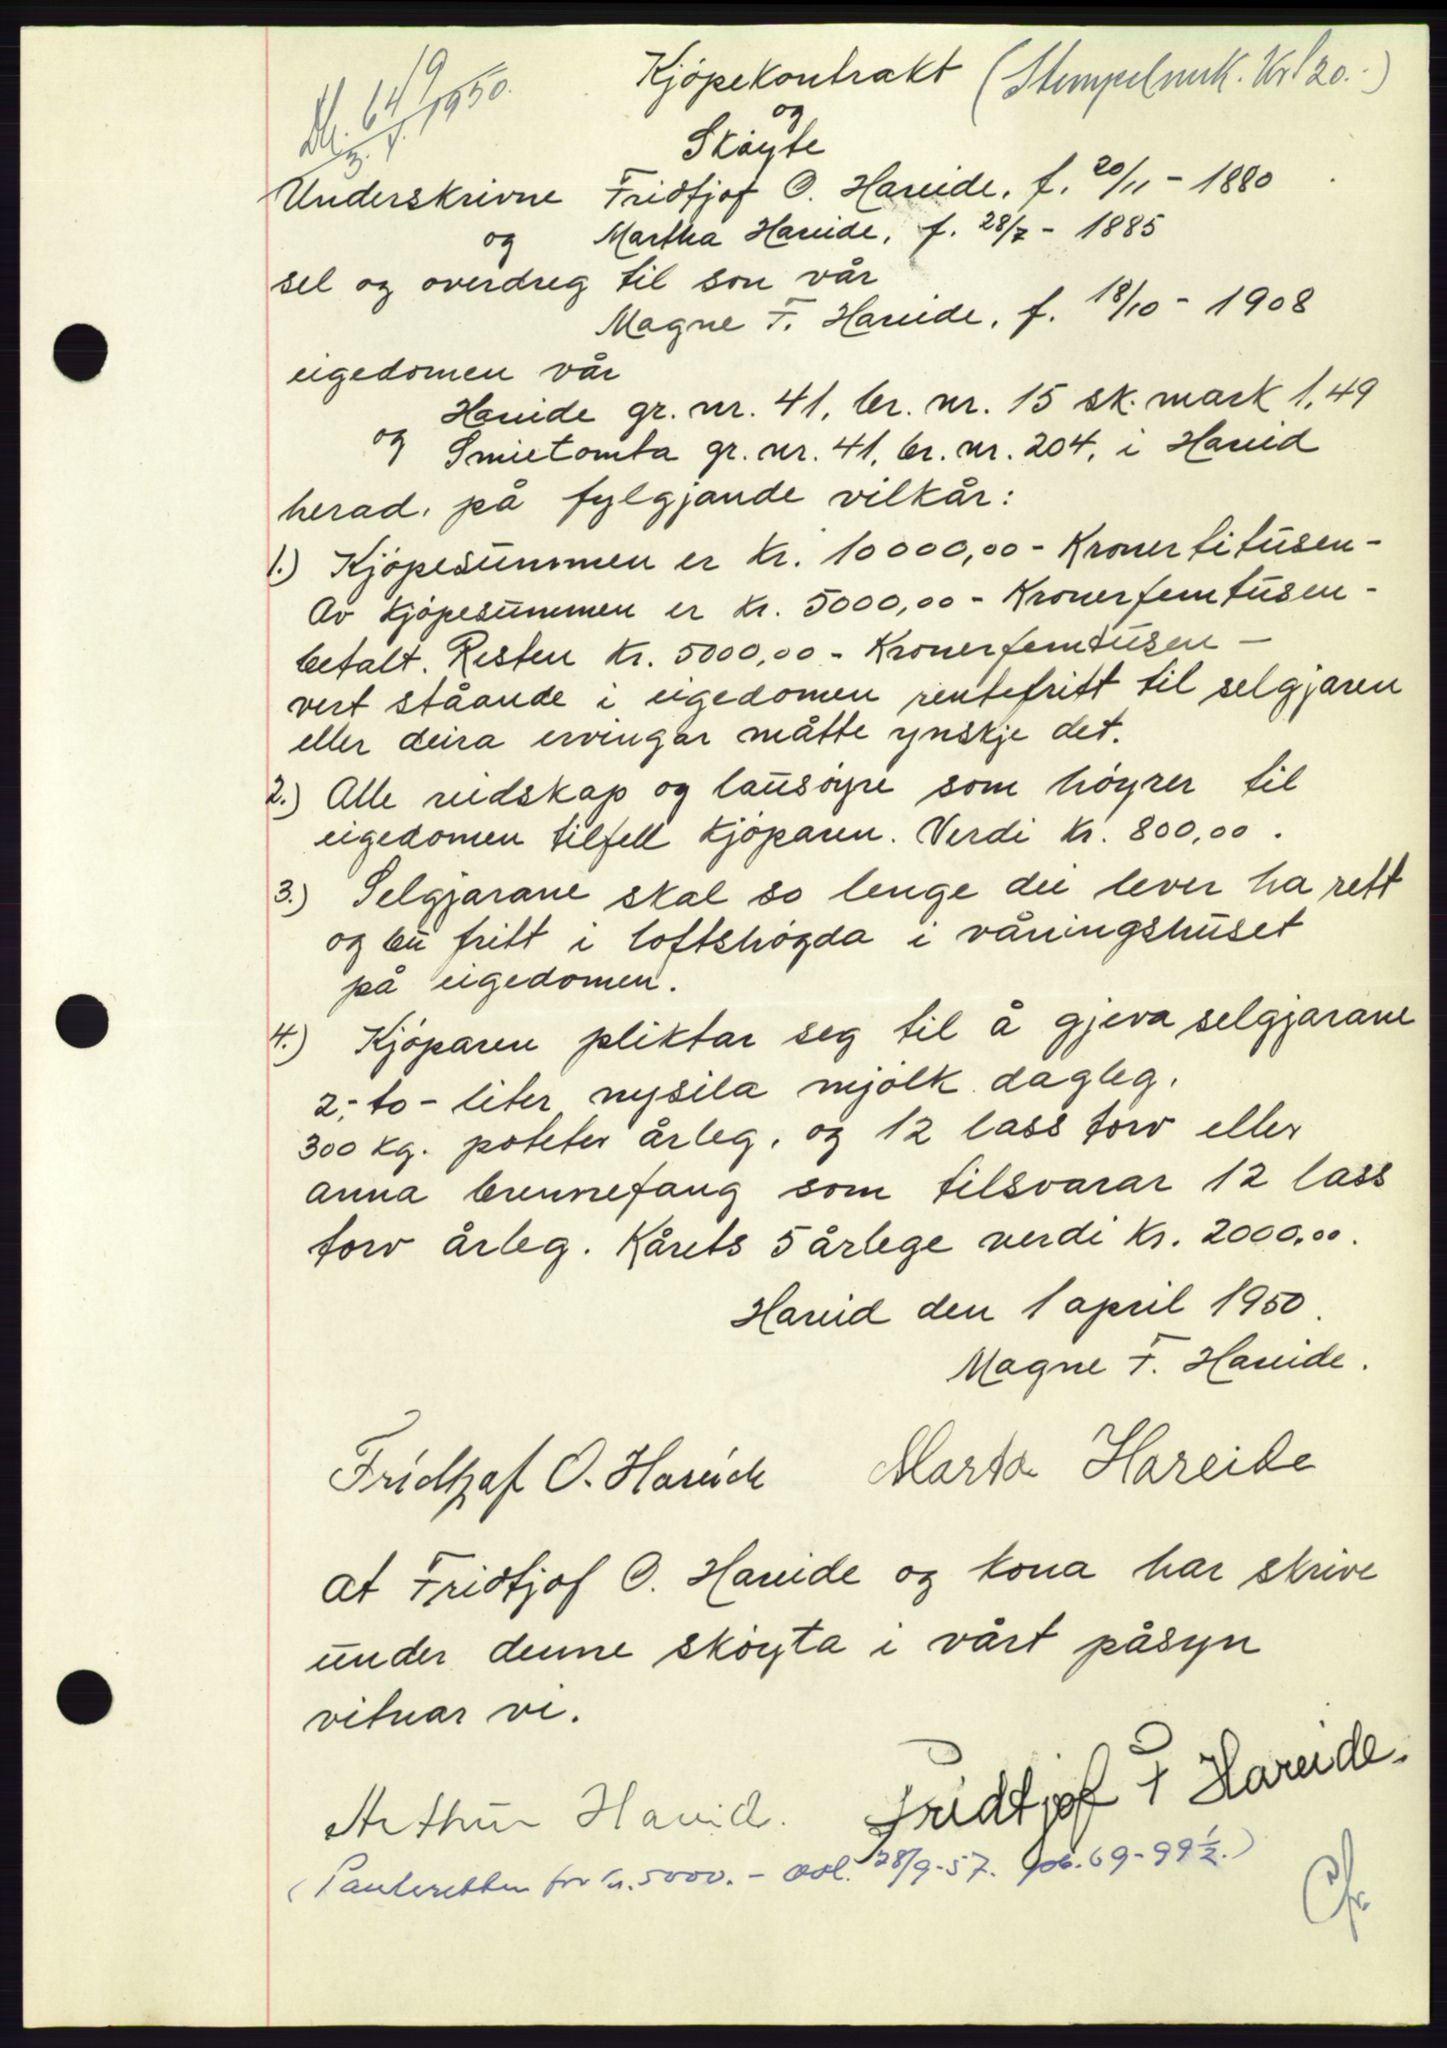 Db. 649
3. 4. 1950.
Kjöpekontrakt (Stempelmrk. Kr 120.-)
og
Sköyte
Underskrivne Fridtjof O. Hareide, f. 20/11 - 1880
og Martha Hareide, f. 28/7 - 1885
sel og overdreg til son vår
Magne F. Hareide, f. 18/10 - 1908
eigedomen vår
Hareide gr. nr. 41, br. nr. 15 sk. mark 1,49
og Smietomta gr. nr. 41, br. nr. 204, i Hareid
herad, på fylgjande vilkår:
1.) Kjöpesummen er kr. 10000,00 - Kroner titusen -
Av kjöpesummen er kr. 5000,00 - Kronerfemtusen -
betalt. Resten kr. 5000,00 - Kronerfemtusen -
vert ståande i eigedomen rentefritt til selgjaren
eller deira ervingar måtte ynskje det.
2.) Alle reidskap og lausöyre som höyrer til
eigedomen tilfell kjöparen. Verdi kr. 800,00.
3.) Selgjarane skal so lenge dei lever ha rett
og bu fritt i loftshögda i våningshuset
på eigedomen.
4.) Kjöparen pliktar seg til å gjeva selgjarane
2,- to - liter nysila mjölk dagleg,
300 kg. poteter årleg, og 12 lass torv eller
anna brennefang som tilsvarar 12 lass
torv årleg. Kårets 5 årlege verdi kr. 2000,00.
Hareid den 1 april 1950.
Magne F. Hareide.
Fridtjof O. Hareide Marta Hareide
At Fridtjof O. Hareide og kona har skrive
under denne sköyta i vårt påsyn
vitnar vi.
Arthur Hareid. Fridtjof F Hareide.
(Panteretten for kr. 5000.- avl. 28/9-57. 69-99½.)